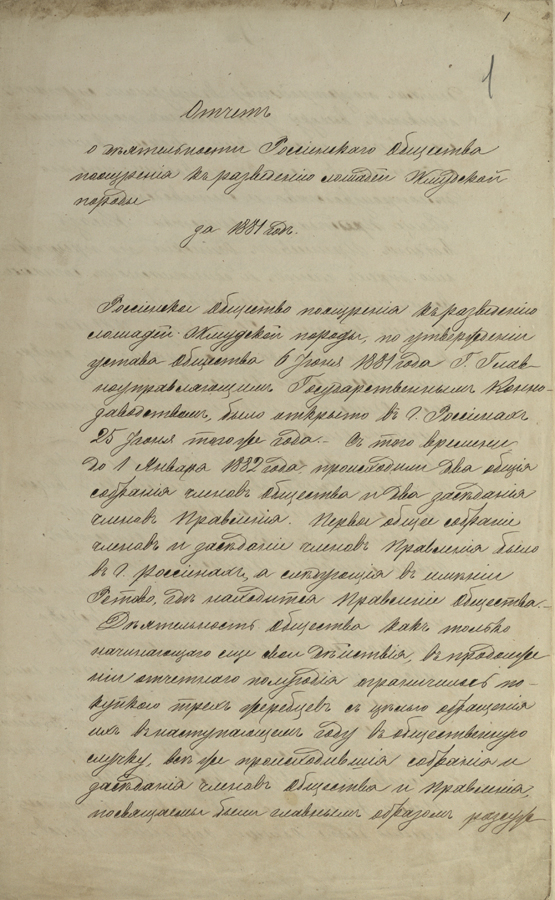 1
1
Отчетъ
о дѣятельности Россіенскаго Общества
поощренія къ разведенію лошадей Жмудской
породы
за 1881 годъ.
Россіенское Общество поощренія къ разведенію
лошадей Жмудской породы, по утвержденіи
устава Общества 6 Іюня 1881 года Г. Глав-
ноуправляющимъ Государственнымъ Конно-
заводствомъ, было открыто въ г. Россіенахъ
25 Іюня того же года. – Съ того времени
до 1 Января 1882 года, происходили два общія
собранія членовъ Общества и два засѣданія
членовъ Правленія. Первое общее собраніе
членовъ и засѣданіе членовъ Правленія было
въ г. Россіенахъ, а слѣдующія въ имѣніи
Ретово, гдѣ находится Правленіе Общества. –
Дѣятельность Общества какъ только
начинающаго еще свои дѣйствія, въ продолже-
ніи отчетнаго полугодія ограничилось по-
купкою трехъ жеребцевъ съ цѣлью обращенія
ихъ въ наступающемъ году въ общественную
случку, всѣ же происходившія собранія и
засѣданія членовъ Общества и Правленія,
посвящаемы были главнымъ образомъ разсуж-